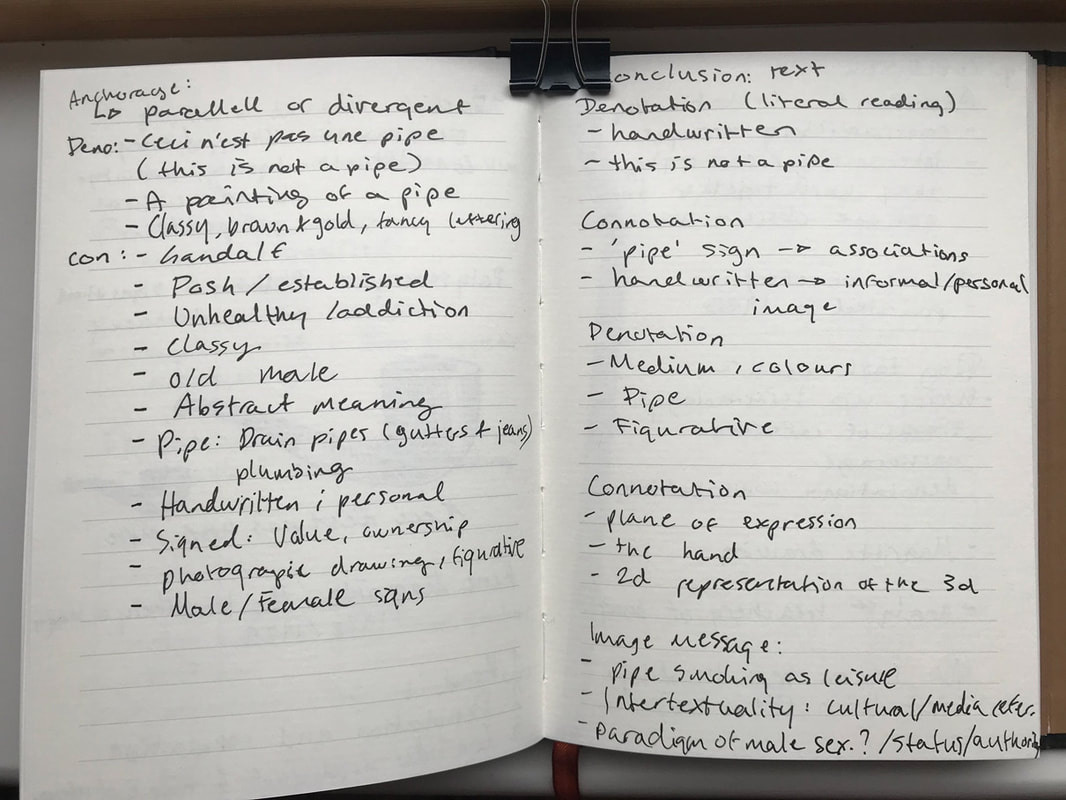 Anchorage:
↳ parallell or divergent
Deno: - Ceci n'est pas une pipe
(this is not a pipe)
- A painting of a pipe
- Classy, brown & gold, fancy lettering
Con: - Gandalf
- Posh / established
- Unhealthy / addiction
- Classy
- old male
- Abstract meaning
- Pipe: Drain pipes (gutters & jeans)
plumbing
- Handwritten; personal
- Signed: Value, ownership
- photograpic drawing, figurative
- Male/Female sqns
onclusion: text
Denotation (literal reading)
- handwritten
- this is not a pipe
Connotation
- 'pipe' sign -> associations
- handwritten -> informal/personal
image
Denotation
- Medium, colours
- Pipe
- Figurative
Connotation
- plane of expression
- the hand
- 2d representation of the 3d
Image message:
- pipe smoking as leisure
- Intertextuality: cultural/media refer.
- Paradigm of male sex.? /status/authority